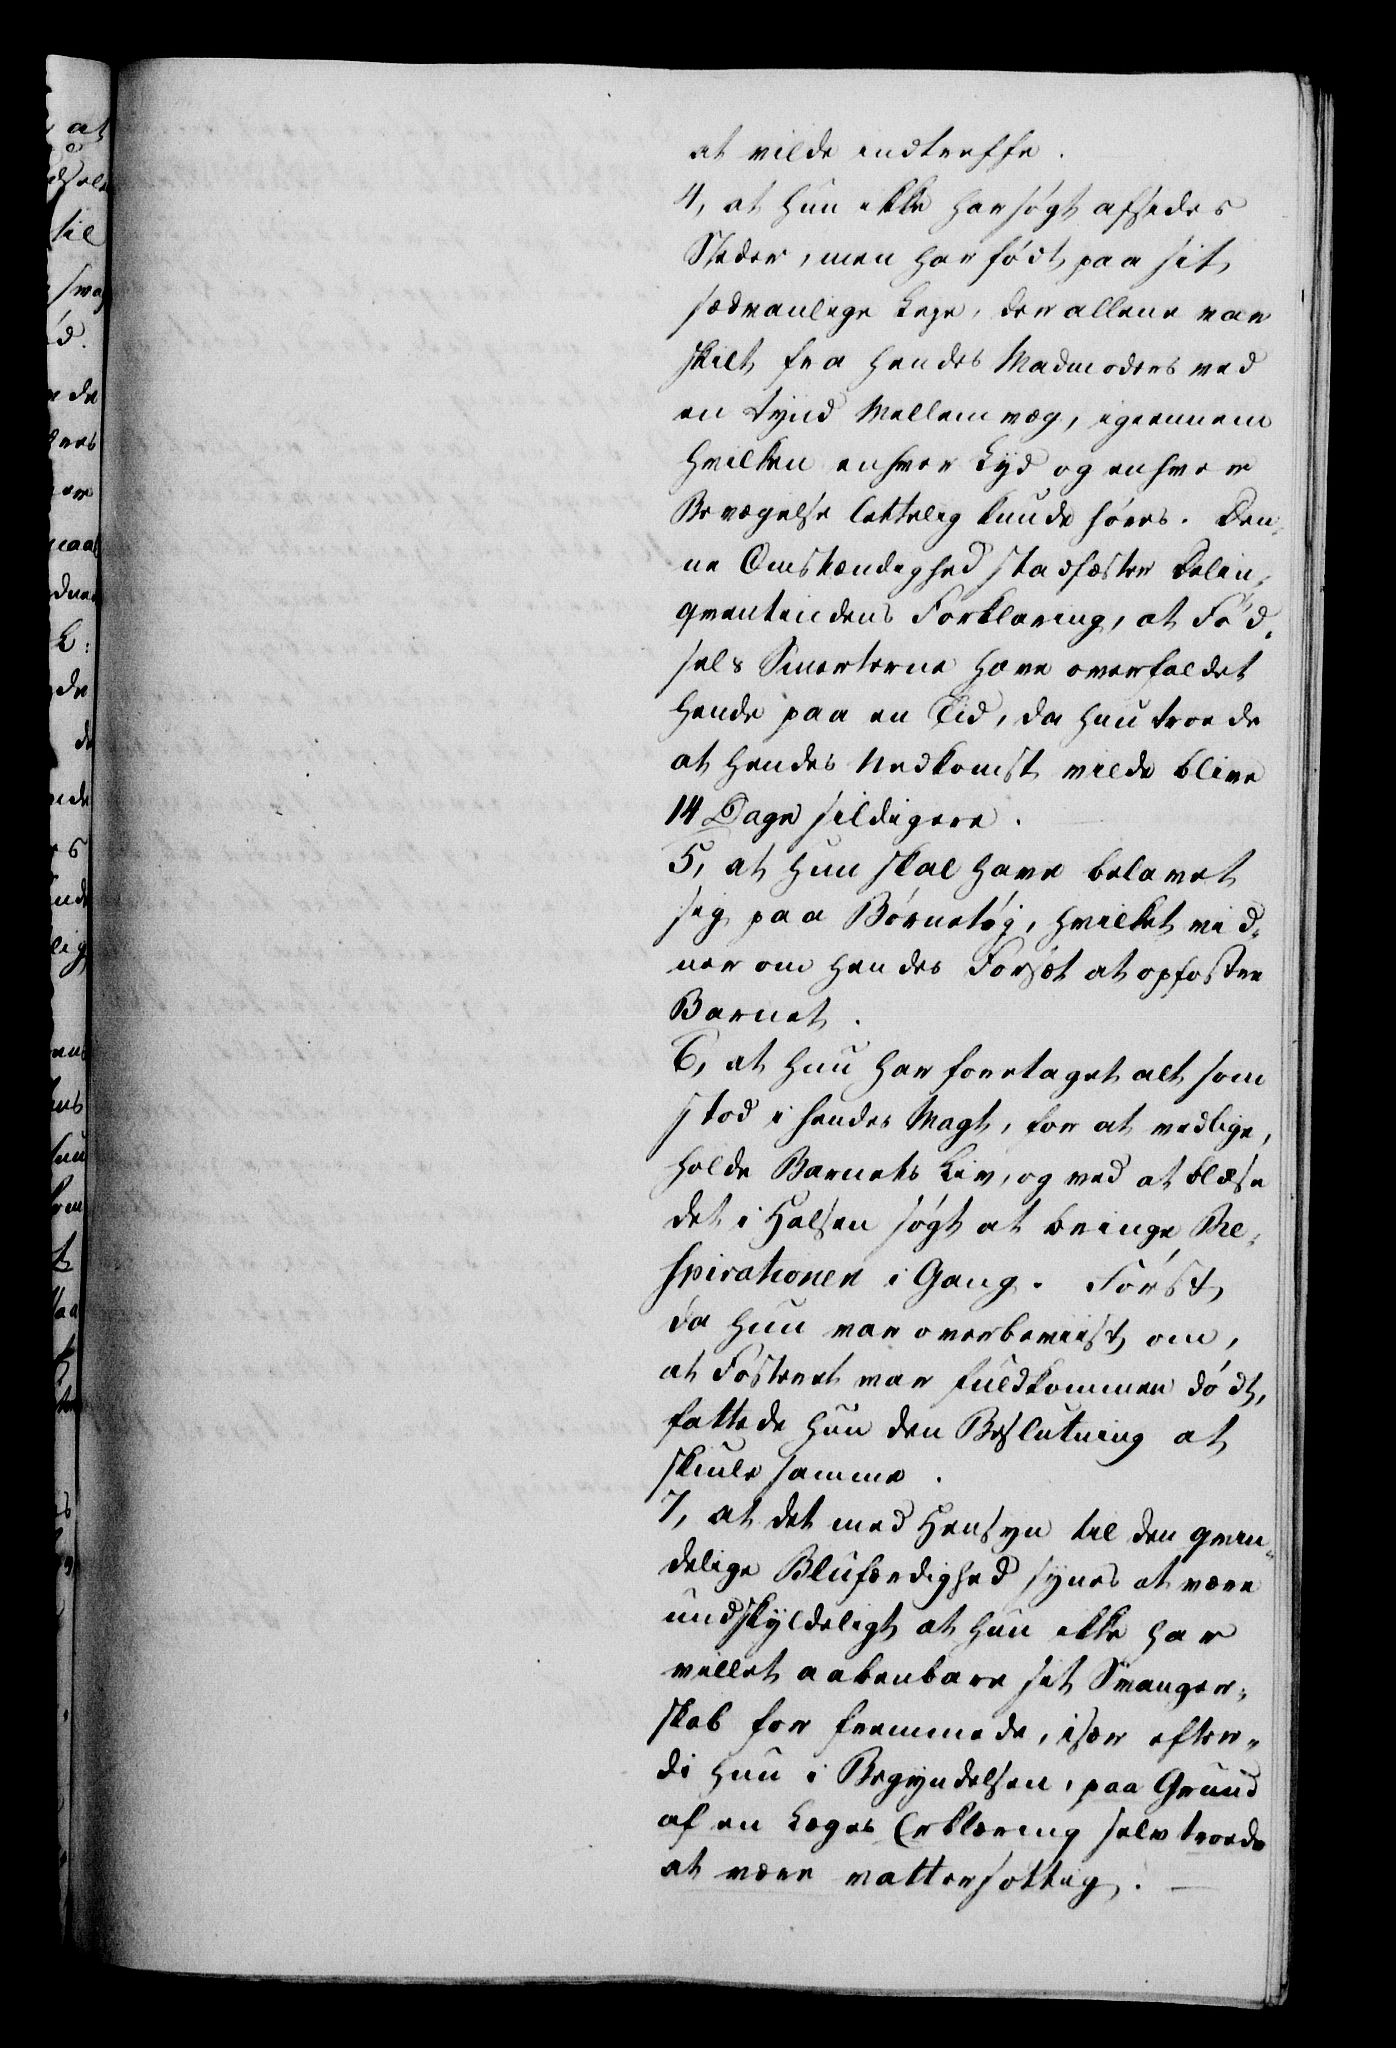 at vilde indtreffe.
4, at hun ikke har søgt afsides
Steder, men har født paa sit
sædvanlige Leje, der allene var
skilt fra hendes Madmoders ved
en tynd Mellemvæg, igiennem
hvilken enhver Lyd og enhver
Bevægelse lettelig kunde høres. Den-
ne Omstændighed stadfæster Delin-
qventindens Forklaring, at Fød-
sels Smerterne have overfaldet
hende paa en Tid, da hun troede
at hendes Nedkomst vilde blive
14 Dage sildigere.
5, at hun skal have belavet
sig paa Børnetøj, hvilket vid-
ner om hendes Forsæt at opfostre
Barnet.
6, at hun har foretaget alt som
stod i hendes Magt, for at vedlige-
holde Barnets Liv, og ved at blæse
det i Halsen søgt at bringe Re-
spirationen i Gang. Først
da hun var overbeviist om,
at Fosteret var fuldkommen dødt,
fattede hun den Beslutning at
skiule samme.
7, at det med Hensyn til den qvin-
delige Blufærdighed synes at være
undskyldeligt at hun ikke har
villet aabenbare sit Svanger-
skab for fremmede, især efter-
di hun i Begyndelsen, paa Grund
af en Læges Erklæring selv troede
at være vattersottig. —